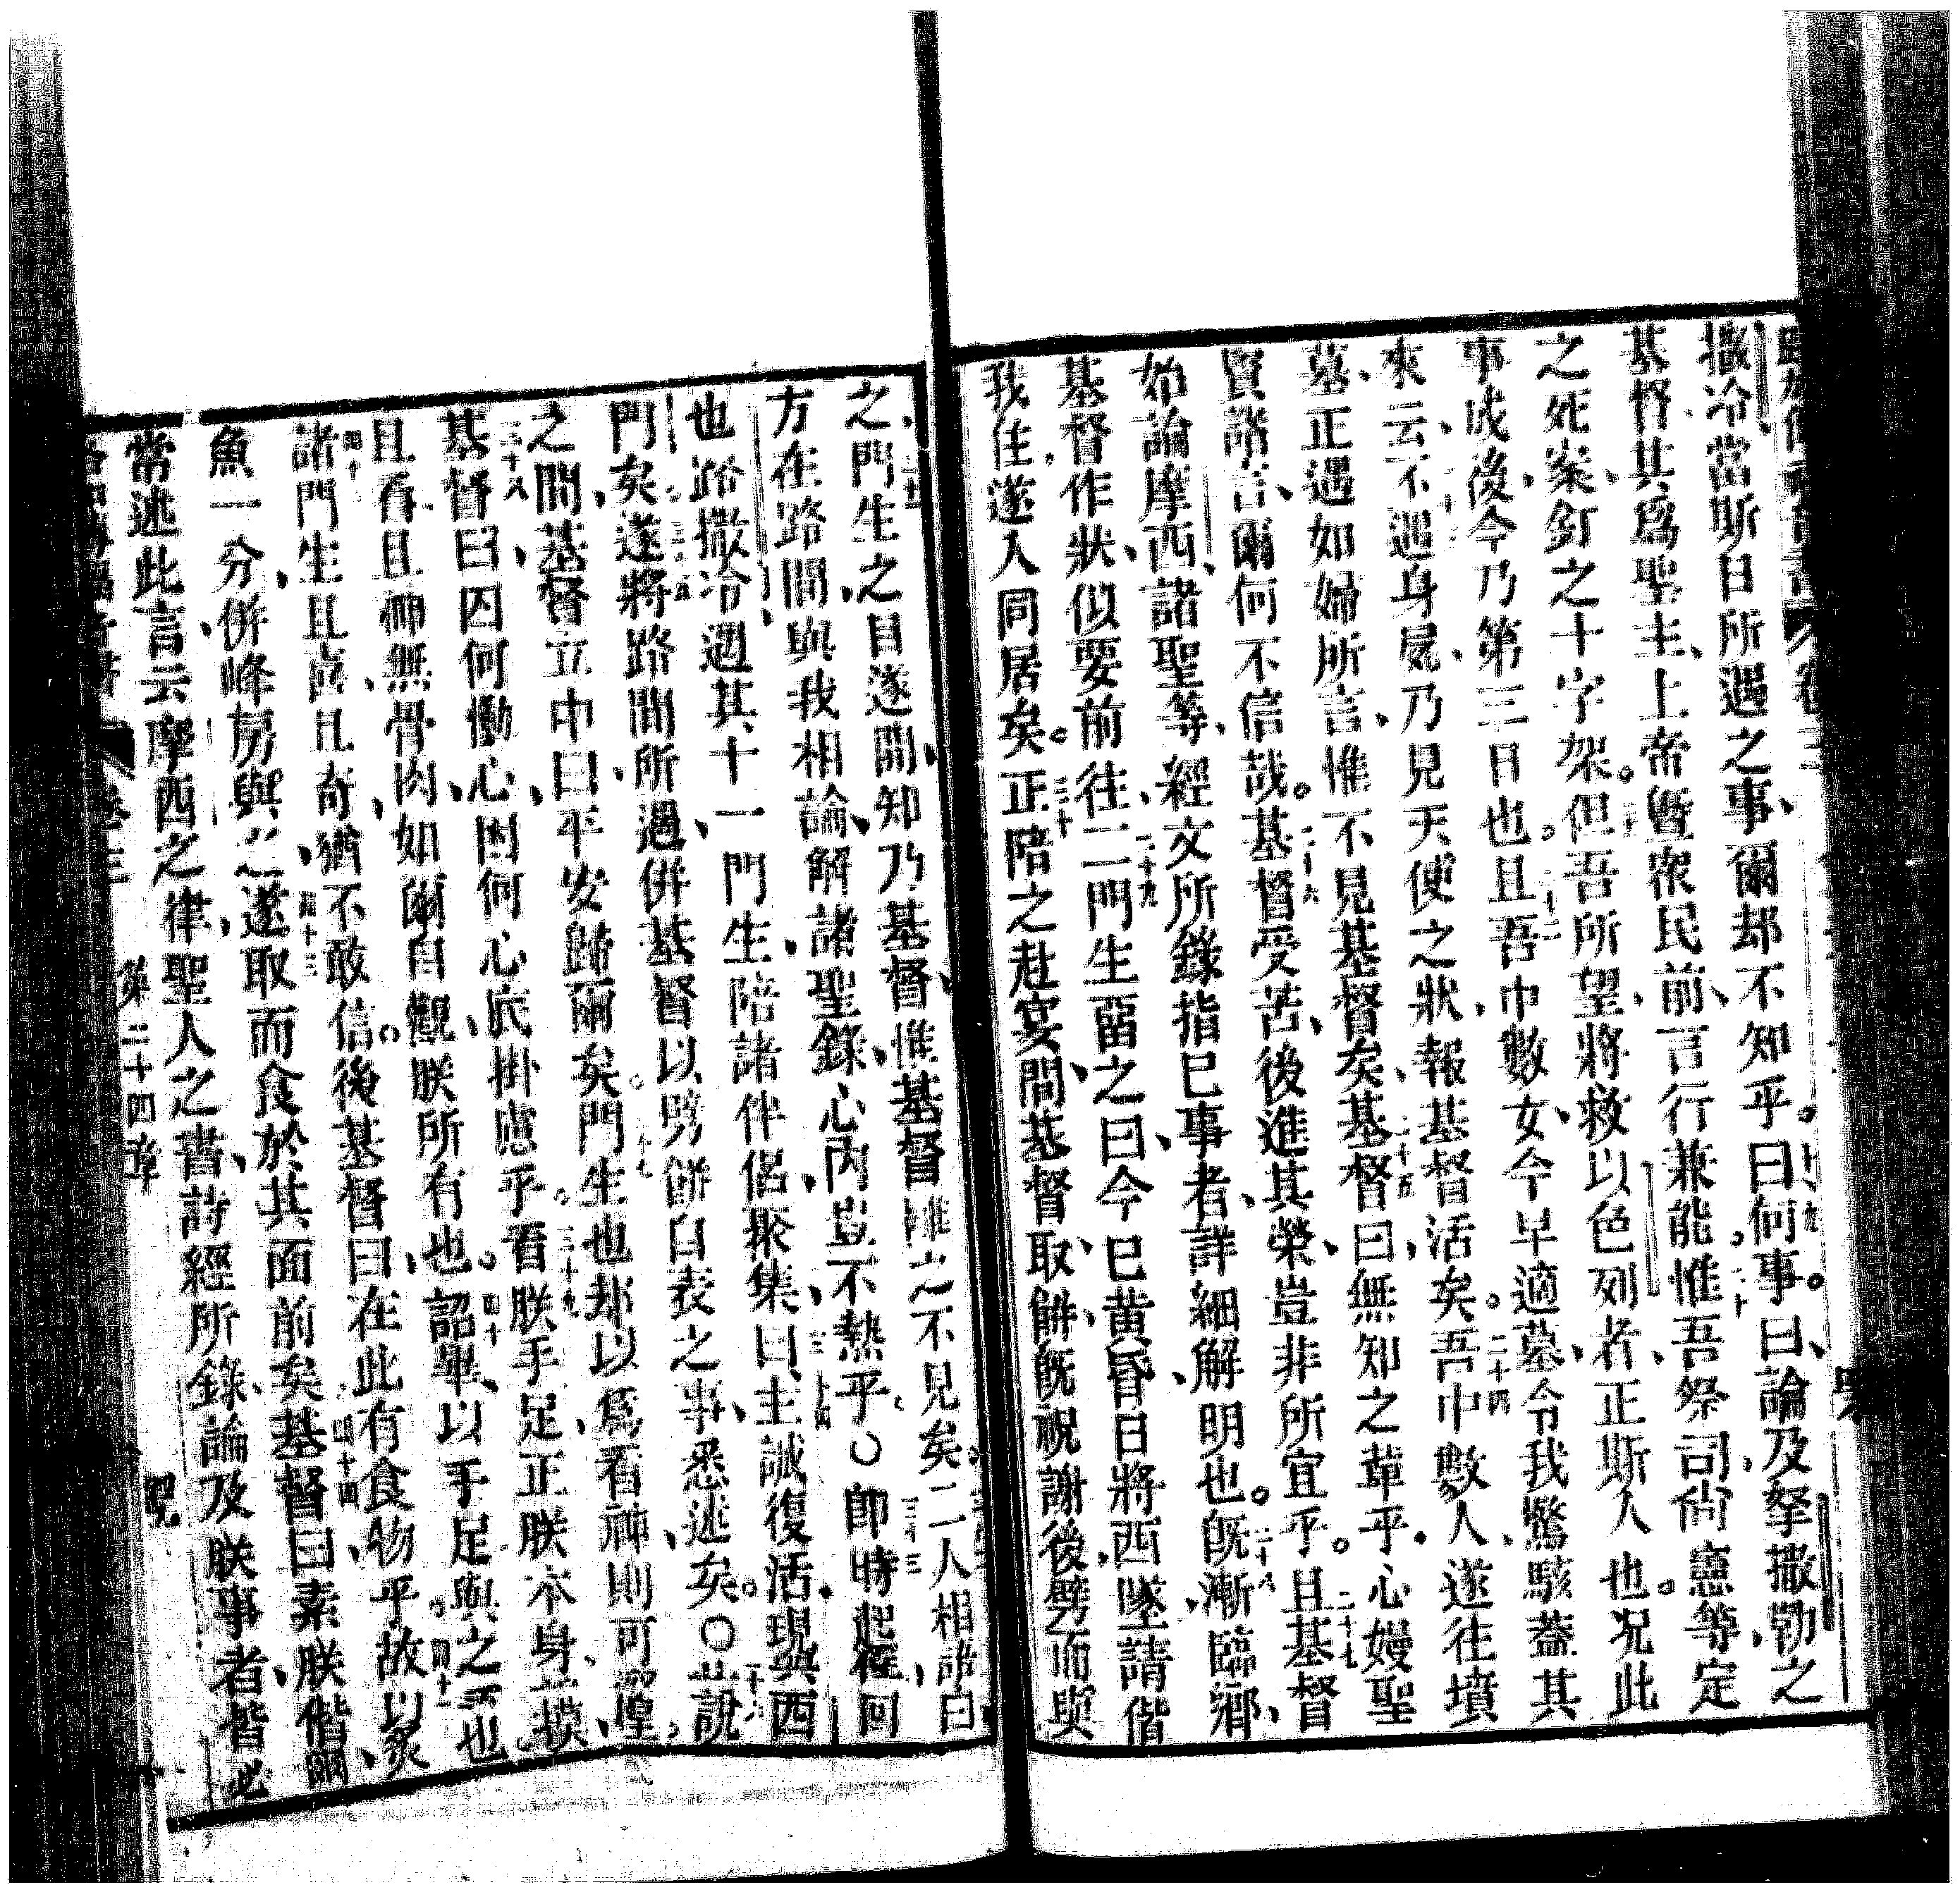 撒冷當斯日所遇之事爾却不知乎曰何事曰論及拏撒勒之
基督其爲聖主上帝曁衆民前言行兼能惟吾祭司尙憲等定
之死案釘之十字架但吾所望將救以色列者正斯人也况此
事成後今乃第三日也且吾巾數女今早適墓令我驚駭蓋其
來云不遇身屍乃見天使之狀報基督活矣吾中數人遂往墳
墓正遇如婦所言惟不見基督矣基督曰無知之輩乎心嫚聖
賢諸言爾何不信哉基督受苦後進其榮豈非所宜乎且基督
始論摩西諸聖等經文所錄指巳事者詳細解明也旣漸臨鄉
基督作狀似要前往二門生畱之曰今巳黃昏日將西墜請偕
我住遂入同居矣正陪之赴宴間基督取餅旣祝謝後劈而與
之門生之目遂開知乃基督惟基督離之不見矣二人相語曰
方在路間與我相論解諸聖錄心內豈不熱乎〇即時起程回
也路撒冷遇其十一門生陪諸伴侶聚集曰主誠復活現與西
門矣遂將路間所遇併基督以劈餅自表之事悉述矣〇此說
之間基督立中曰平安歸爾矣門生也却以爲看神則可惶
基督曰因何慟心因何心底掛慮乎看朕手足正朕本身且摸
且看且神無骨肉如爾自觀朕所有也詔畢以手足與之示也
諸門生且喜且奇猶不敢信後基督曰在此有食物乎故以炙
魚一分併蜂房與之遂取而食於其面前矣基督曰素朕偕爾
常述此言云摩西之律聖人之書詩經所錄論及朕事者皆必
第二十四章